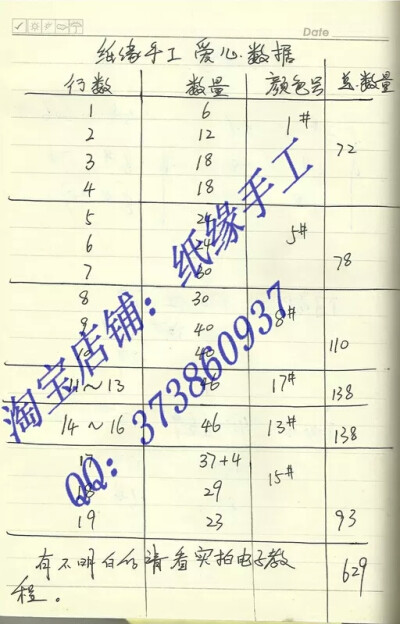 Date
纸缘手工 爱心数据
行数 数量 颜色号 总数量
1 6 1#
2 12
3 18 72
4 18
5 24 5#
6 24
7 30 78
8 30 8#
9 40
10 40 110
11～13 46 17# 138
14～16 46 13# 138
17 37+4 15#
18 29
19 23 93
有不明白的请看实拍电子教 629
程。
淘宝店铺：纸缘手工
QQ：373860937